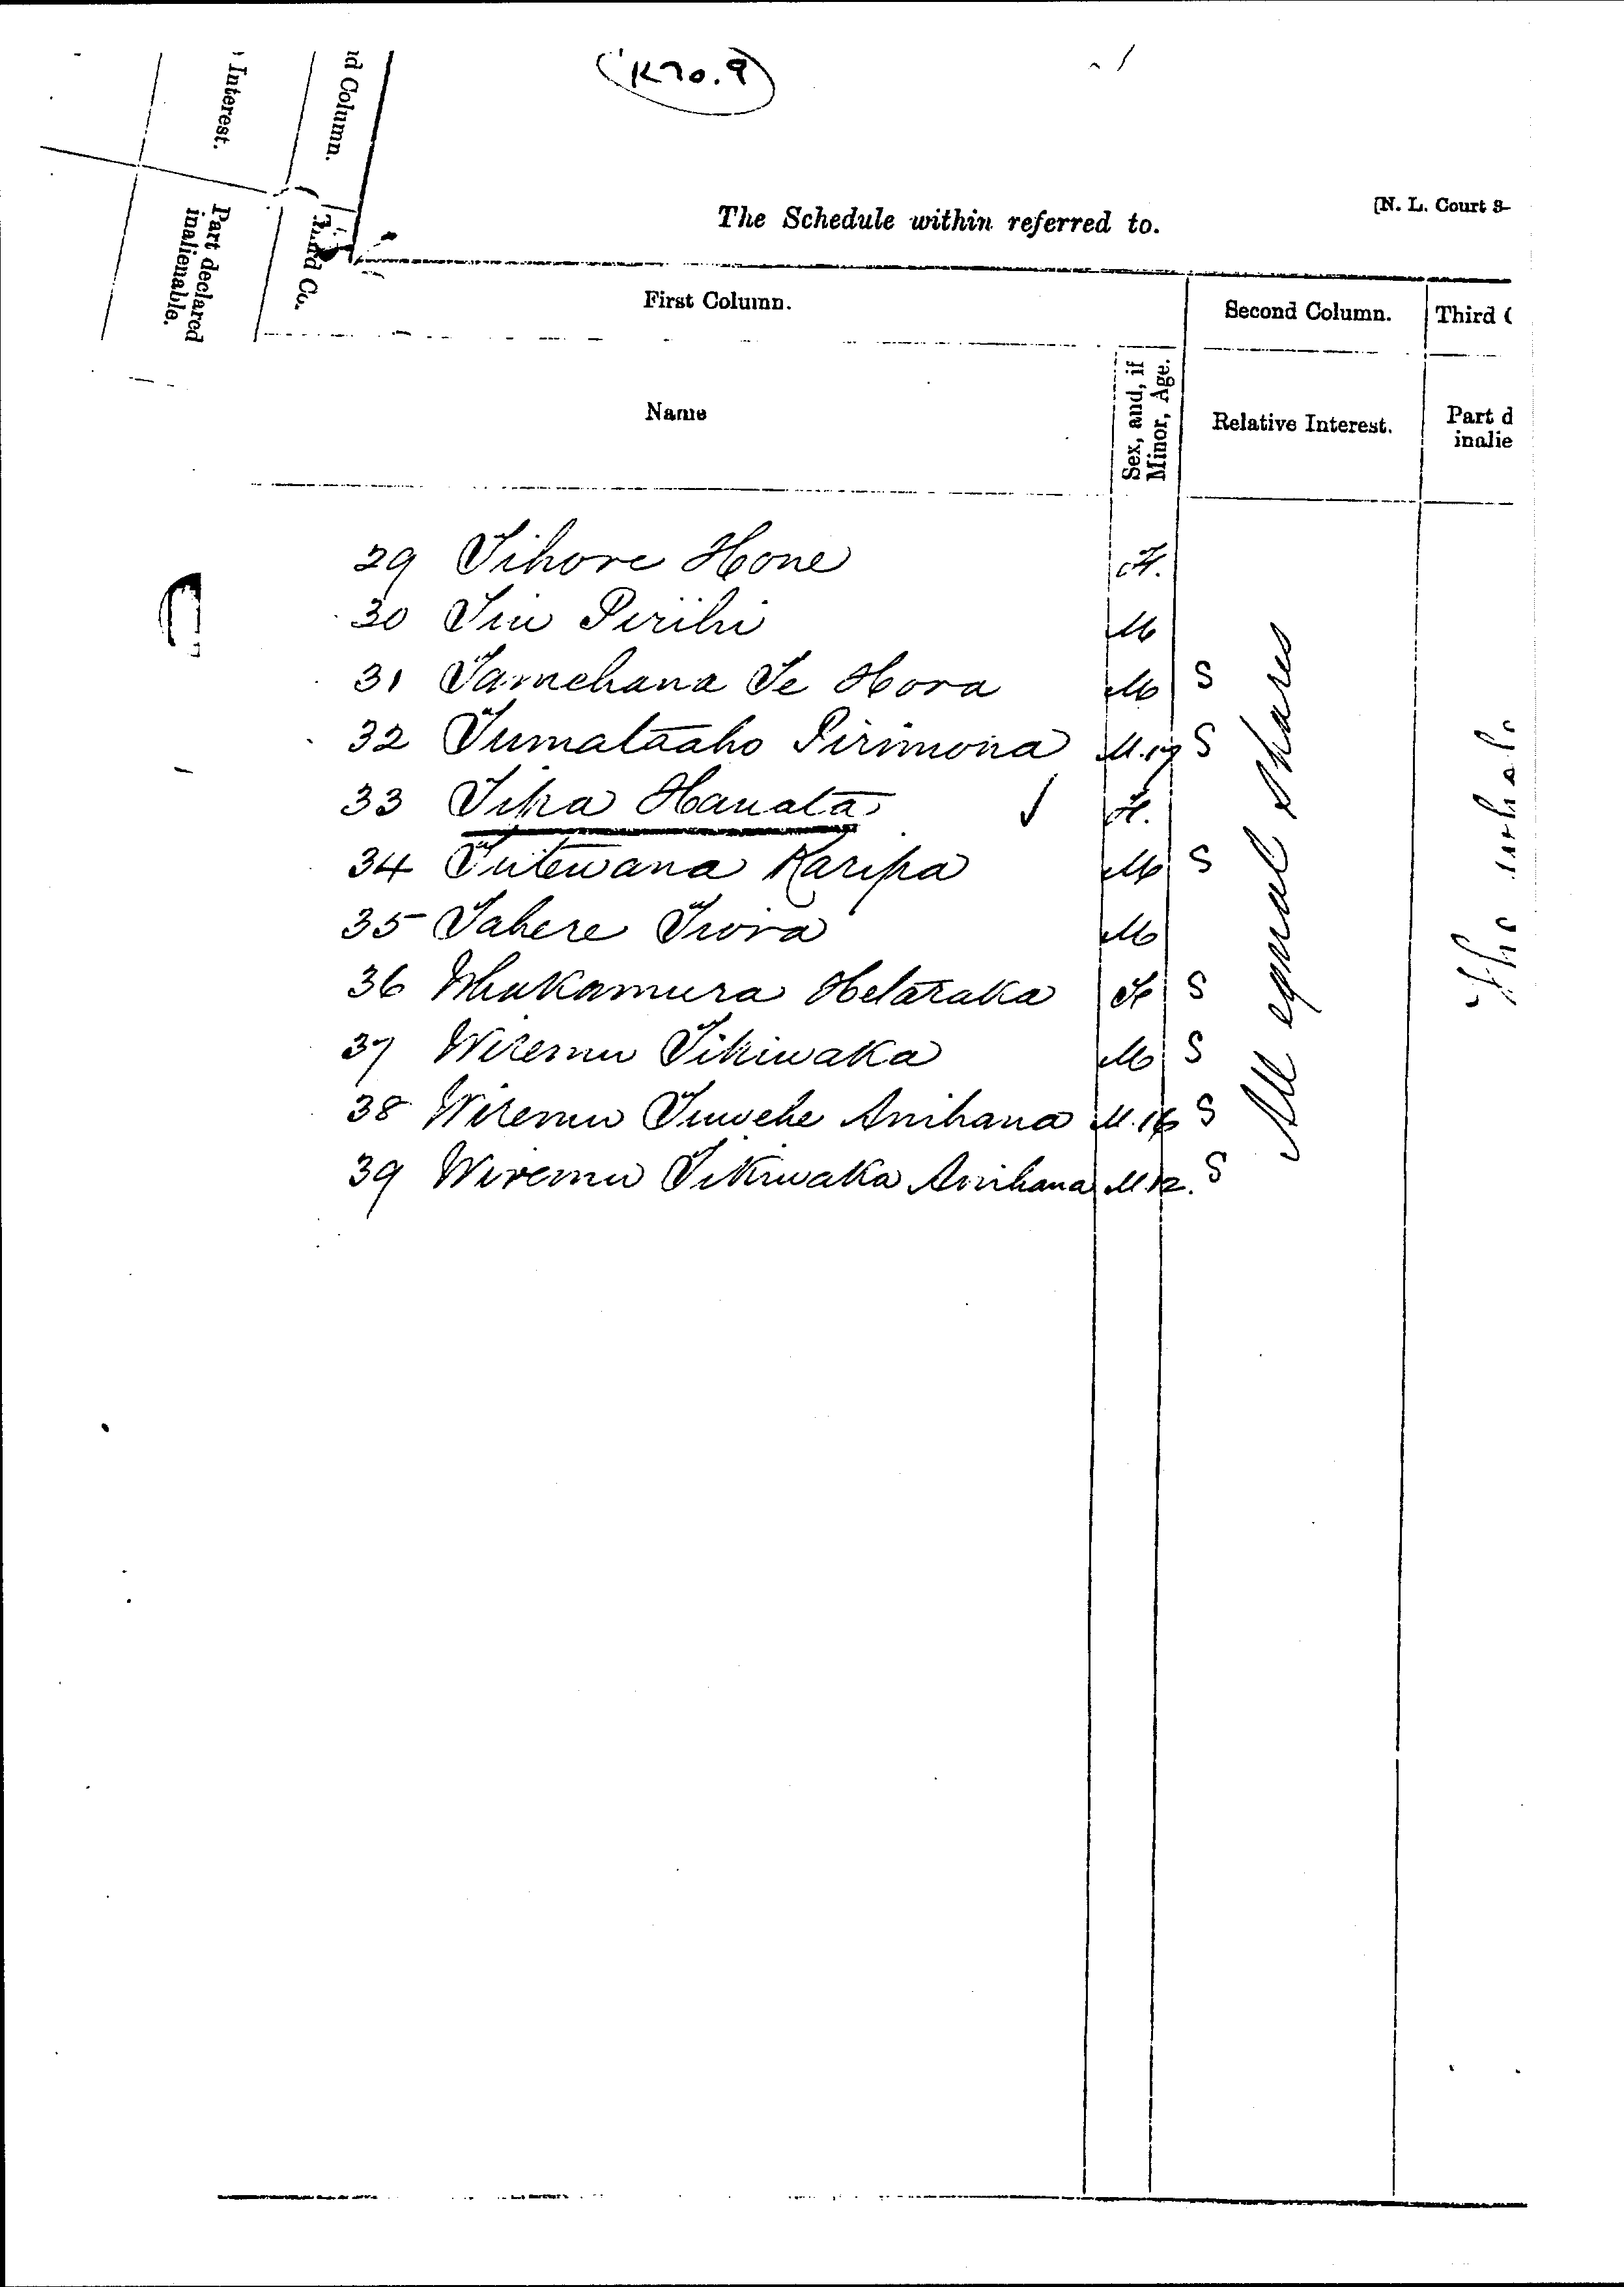 (K70.9)
d Column.
Interest.
Part declared
inalienable.
[N. L. Court 3-
The Schedule within referred to.
First Column.
Second Column.
Third C
Name
Sex, and, if
Minor, Age.
Relative Interest.
Part d
inalie
29 Tihore Hone F.
30 Tiu Pirihi M
31 Tamehana Te Hora M S
32 Tumataaho Pirimona M.17 S
33 Tika Hauata ✓ F.
34 Tutewana Karipa M S
35 Tahere Tiora M
36 Whakamura Hetaraka F S
37 Wiremu Tikiwaka M S
38 Wiremu Tuwehe Anihana M.16 S
39 Wiremu Tikiwaka Anihana M.12. S
All equal shares
The whole